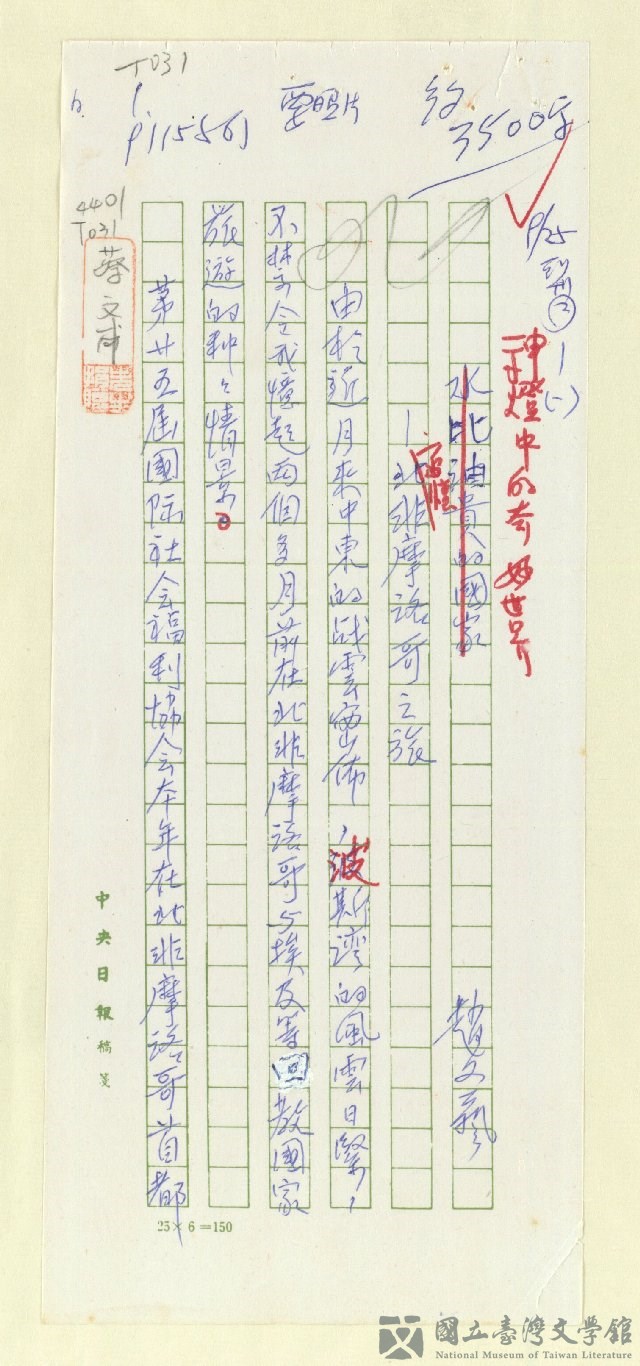 T031
1.
P115561
要照片
約
3500字
4401
T031
蔡文甫
1
(一)
神燈中的奇妙世界
水比油貴的國家
趙文藝
1.北非摩洛哥之旅
由於近月來中東的战雲密佈,波斯灣的風雲日緊,
不禁令我憶起兩個多月前在北非摩洛哥与埃及等回教國家
旅遊的种々情景。
第廿五届國际社会福利協会本年在北非摩洛哥首都
中央日報稿箋
25×6=150
國立臺灣文學館
National Museum of Taiwan Literature